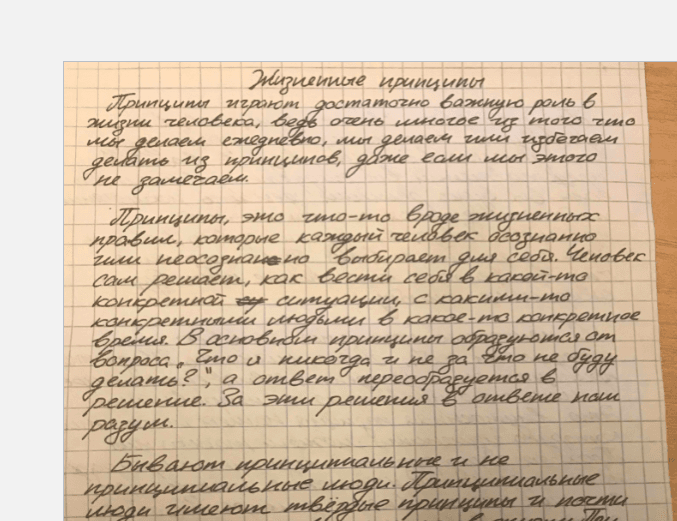 Жизненные принципы
Принципы играют достаточно важную роль в
жизни человека, ведь очень многое из того что
мы делаем ежедневно, мы делаем или избегаем
делать из принципов, даже если мы этого
не замечаем.
Принципы, это что-то вроде жизненных
правил, которые каждый человек осознанно
или неосознанно выбирает для себя. Человек
сам решает, как вести себя в какой-то
конкретной ситуации, с какими-то
конкретными людьми в какое-то конкретное
время. В основном принципы образуются от
вопроса „Что я никогда и не за что не буду
делать?", а ответ переобразуется в
решение. За эти решения в ответе наш
разум.
Бывают принципиальные и не
принципиальные люди. Принципиальные
люди имеют твёрдые принципы и почти